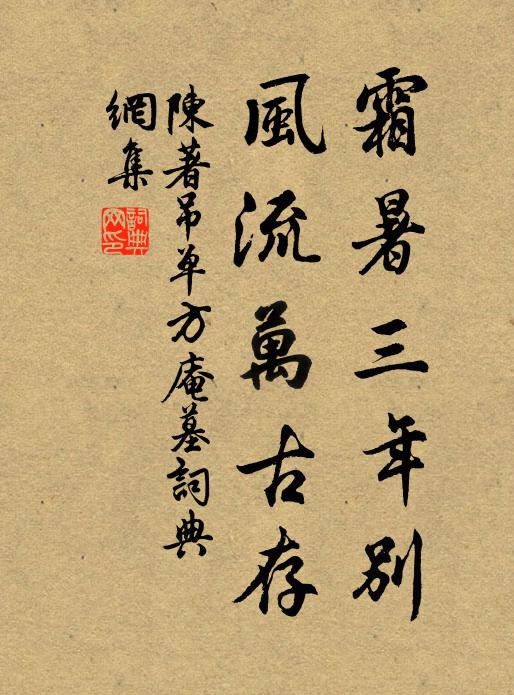 霜暑三年別
風流萬古存
陳著吊單方庵墓詞典
網集
詞典网印